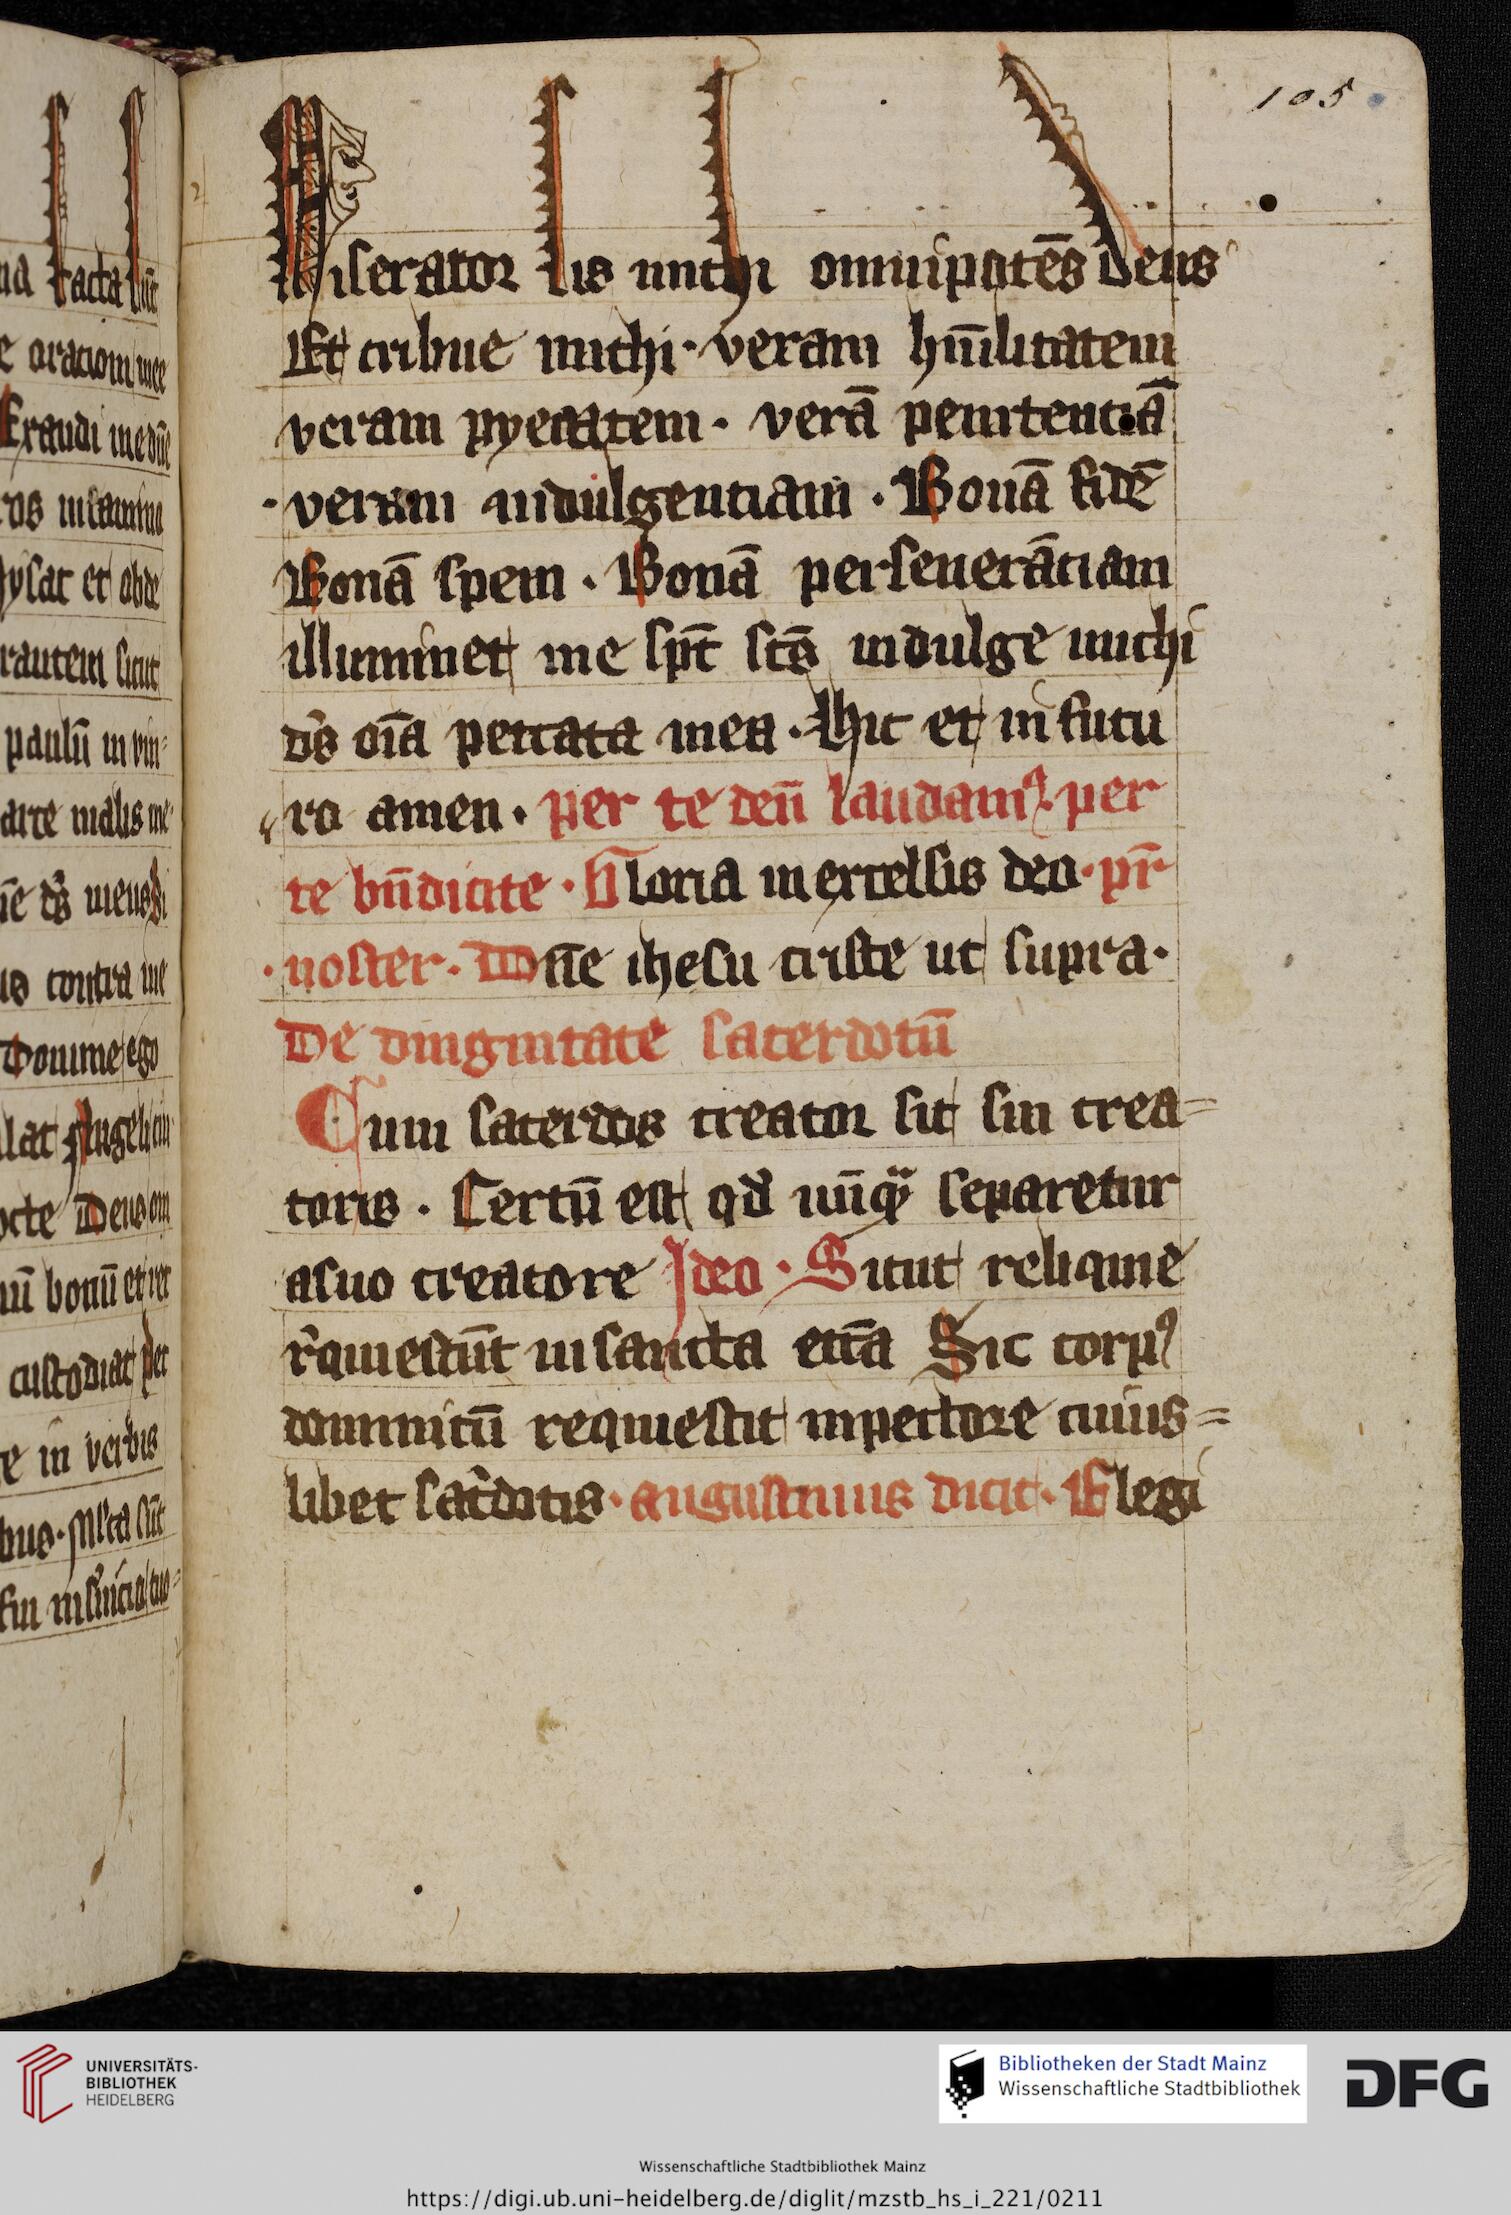 105
Miserator sis michi omnipotēs deus
Et tribue michi · veram hūilitatem
veram pyetatem · verā penitentiā
· veram indulgentiam · Bonā fidē
Bonā spem · Bonā perseuerātiam
illuminet me spt̄ sc̄s indulge michi
dn̄s oīa peccata mea · Hic et in futu
ro amen · per te deū laudamꝰ · per
te bn̄dicite · Gloria in excelsis deo · pr̄
· noster · Dn̄e ihesu criste ut supra ·
De dingnitate sacerdotū
Cum sacerdos creator sit sui crea=
toris · Certū est qd nūqᷓ separetur
a suo creatore Ideo · Sicut reliquie
r̄quiescūt in sancta ecc̄a Sic corpꝰ
dominicū requiescit in pectore cuius=
libet sac̄dotis · augustinus dicit · Elegi
UNIVERSITÄTS-
BIBLIOTHEK
HEIDELBERG
Bibliotheken der Stadt Mainz
Wissenschaftliche Stadtbibliothek
DFG
Wissenschaftliche Stadtbibliothek Mainz
https://digi.ub.uni-heidelberg.de/diglit/mzstb_hs_i_221/0211